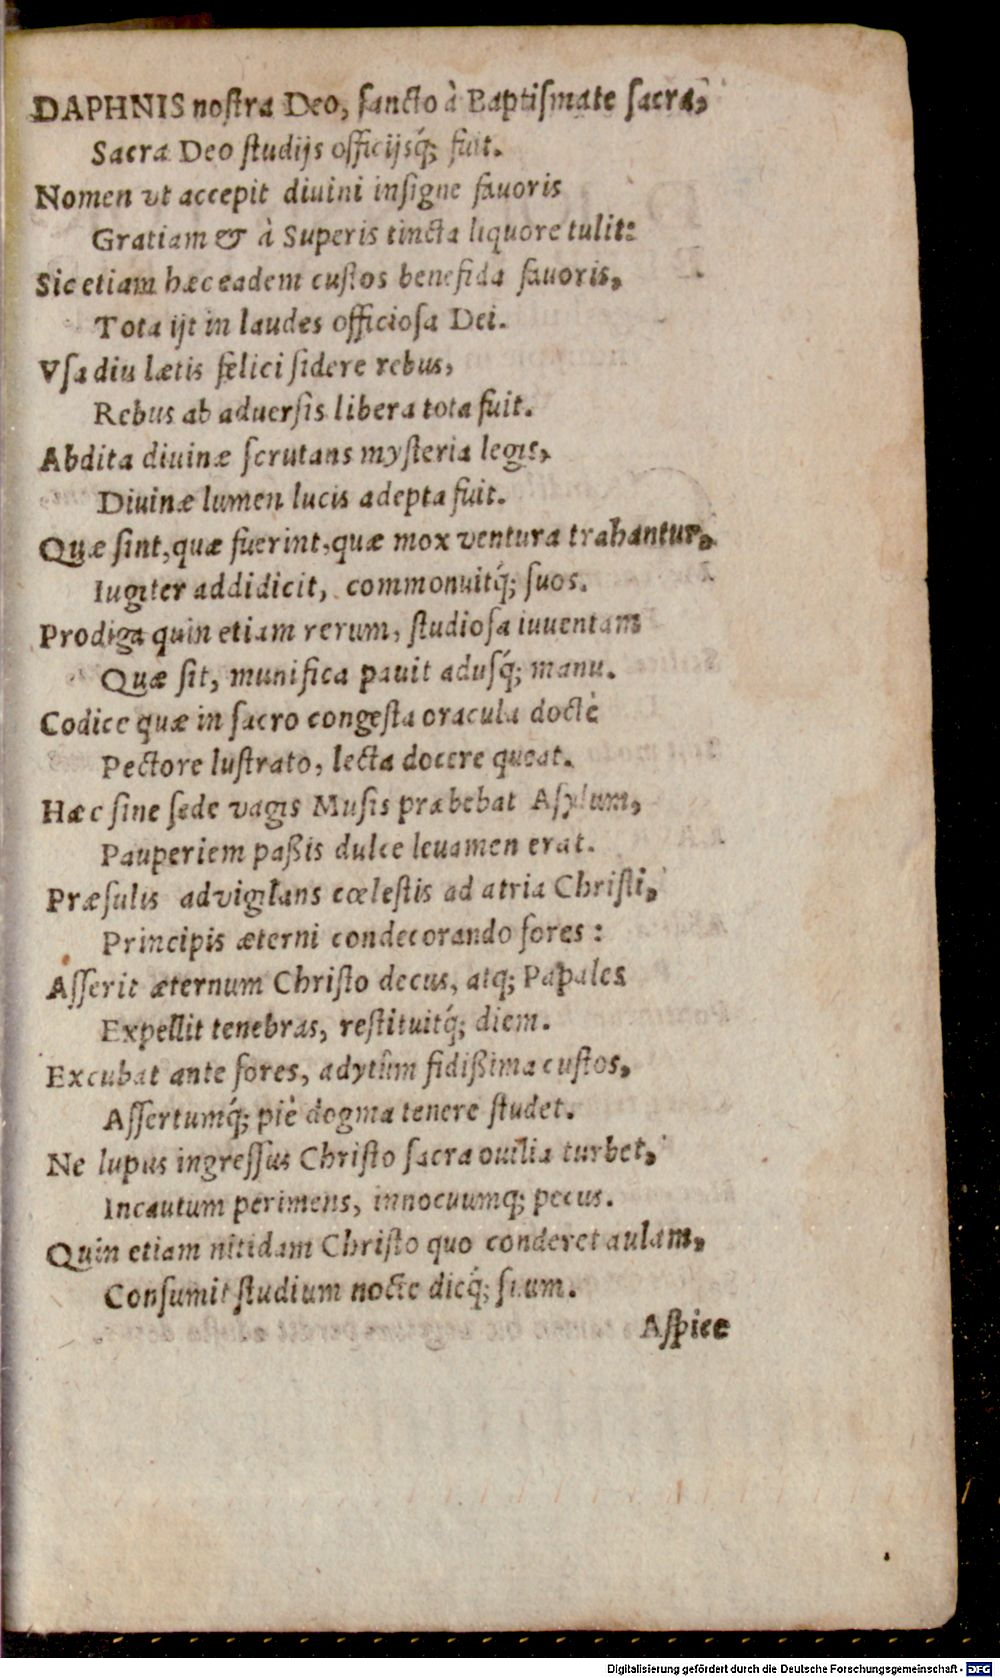 DAPHNIS noſtra Deo, ſancto à Baptiſmate ſacra,
Sacra Deo ſtudijs officijsq́; fuit.
Nomen vt accepit diuini inſigne fauoris
Gratiam & à Superis tincta liquore tulit:
Sic etiam hæc eadem cuſtos benefida fauoris,
Tota ijt in laudes officioſa Dei.
Vſa diu lætis felici ſidere rebus,
Rebus ab aduerſis libera tota fuit.
Abdita diuinæ ſcrutans myſteria legis,
Diuinæ lumen lucis adepta fuit.
Quæ ſint, quæ fuerint, quæ mox ventura trahantur,
Iugiter addidicit, commonuitq́; ſuos.
Prodiga quin etiam rerum, ſtudioſa iuuentam
Quæ ſit, munifica pauit aduſq́; manu.
Codice quæ in ſacro congeſta oracula doctè
Pectore luſtrato, lecta docere queat.
Hæc ſine ſede vagis Muſis præbebat Aſylum,
Pauperiem paßis dulce leuamen erat.
Præſulis advigilans cœleſtis ad atria Chriſti,
Principis æterni condecorando fores :
Aſſerit æternum Chriſto decus, atq; Papales
Expellit tenebras, reſtituitq́; diem.
Excubat ante fores, adytûm fidißima cuſtos,
Aſſertumq́; piè dogma tenere ſtudet.
Ne lupus ingreſſus Chriſto ſacra ouilia turbet,
Incautum perimens, innocuumq; pecus.
Quin etiam nitidam Chriſto quo conderet aulam,
Conſumit ſtudium nocte dieq́; ſuum.
Aſpice
Digitalisierung gefördert durch die Deutsche Forschungsgemeinschaft - DFG